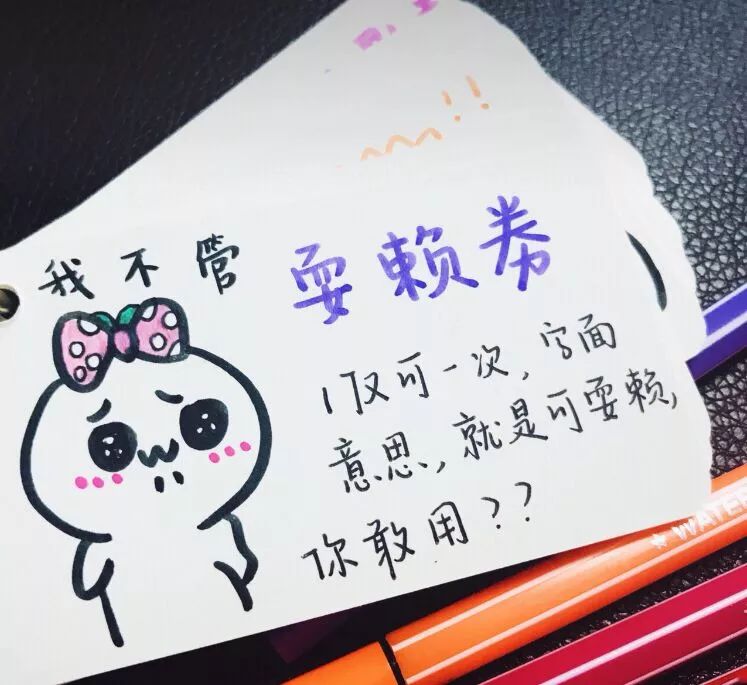 我不管
耍赖券
仅可一次，字面
意思，就是可耍赖，
你敢用？？
!!
WATER